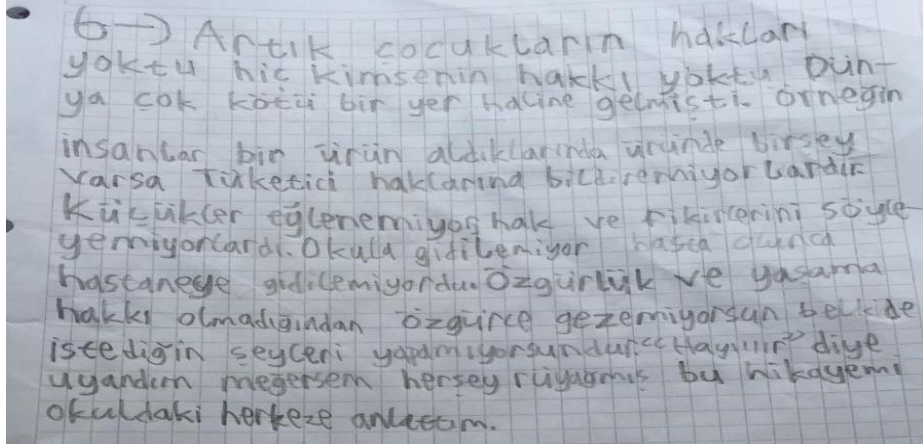 6→) Artık çocukların hakları
yoktu hiç kimsenin hakkı yoktu Dün-
ya çok kötü bir yer haline gelmişti. örneğin
insanlar bir ürün aldıklarında üründe birşey
varsa Tüketici haklarına bildiremiyorlardır
Küçükler eğlenemiyor hak ve fikirlerini söyle
yemiyorlardı. Okula gidilemiyor hasta olunca
hastaneye gidilemiyordu. Özgürlük ve yaşama
hakkı olmadığından özgürce gezemiyorsun belkide
istediğin şeyleri yapamıyorsundur. "Hayıııır" diye
uyandım meğersem herşey rüyaymış bu hikayemi
okuldaki herkeze anlattım.